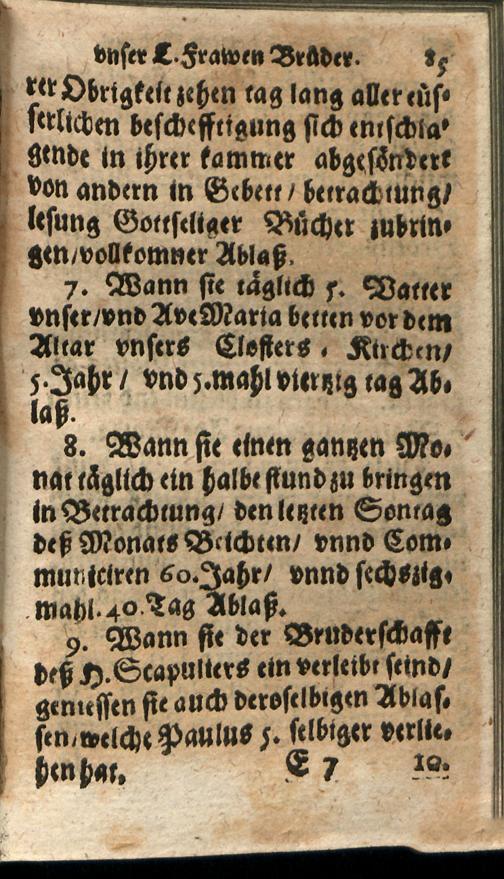 vnser L. Frawen Brüder. 85
rer Obrigkeit zehen tag lang aller eüs-
serlichen bescheff tigung sich entschla-
gende in ihrer kammer abgesöndert
von andern in Gebett / betrachtung/
lesung Gottseliger Bücher zubrin-
gen/vollkomner Ablaß.
7. Wann sie täglich 5. Vatter
vnser/vnd Ave Maria betten vor dem
Altar vnsers Closters-Kirchen/
5. Jahr / vnd 5.mahl viertzig tag Ab-
laß.
8. Wann sie einen gantzen Mo-
nat täglich ein halbe stund zu bringen
in Betrachtung/ den letzten Sontag
deß Monats Beichten/ vnnd Com-
municiren 60. Jahr/ vnnd sechszig-
mahl. 40. Tag Ablaß.
9. Wann sie der Bruderschafft
deß H. Scapuliers ein verleibt seind/
geniessen sie auch deroselbigen Ablas-
sen/welche Paulus 5. selbiger verlie-
hen hat. E 7 10.